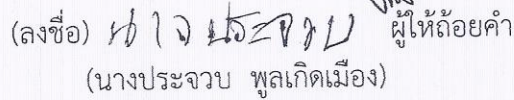 (ลงชื่อ) นางประจวบ ผู้ให้ถ้อยคำ
(นางประจวบ พูลเกิดเมือง)